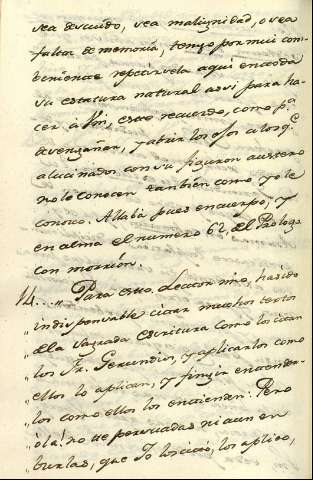 sea descuido, sea malignidad, o sea
falta de memoria, tengo por mui com-
beniente repetirsela aqui en toda
su estatura natural assi para ha-
cer à Vm, este recuerdo, como pª
desengañar, y abrir los ojos a los q.e
alucinados con su figuron austero
no lo conocen tambien como yo le
conozco. Allaba pues en cuerpo, y
en alma el numero 62, del Prologo
con morrion.
14... „ Para esto, Lector mio, ha sido
„ indispensable citar muchos textos
„ de la Sagrada Escritura como los citan
„ los Fr. Gerundios, y aplicarlos como
„ ellos los aplican, y fingir entender-
„ los como ellos los entienden. Pero
„ ola! no te persuadas ni aun en
„ burlas, que Yo los cito, los aplico,